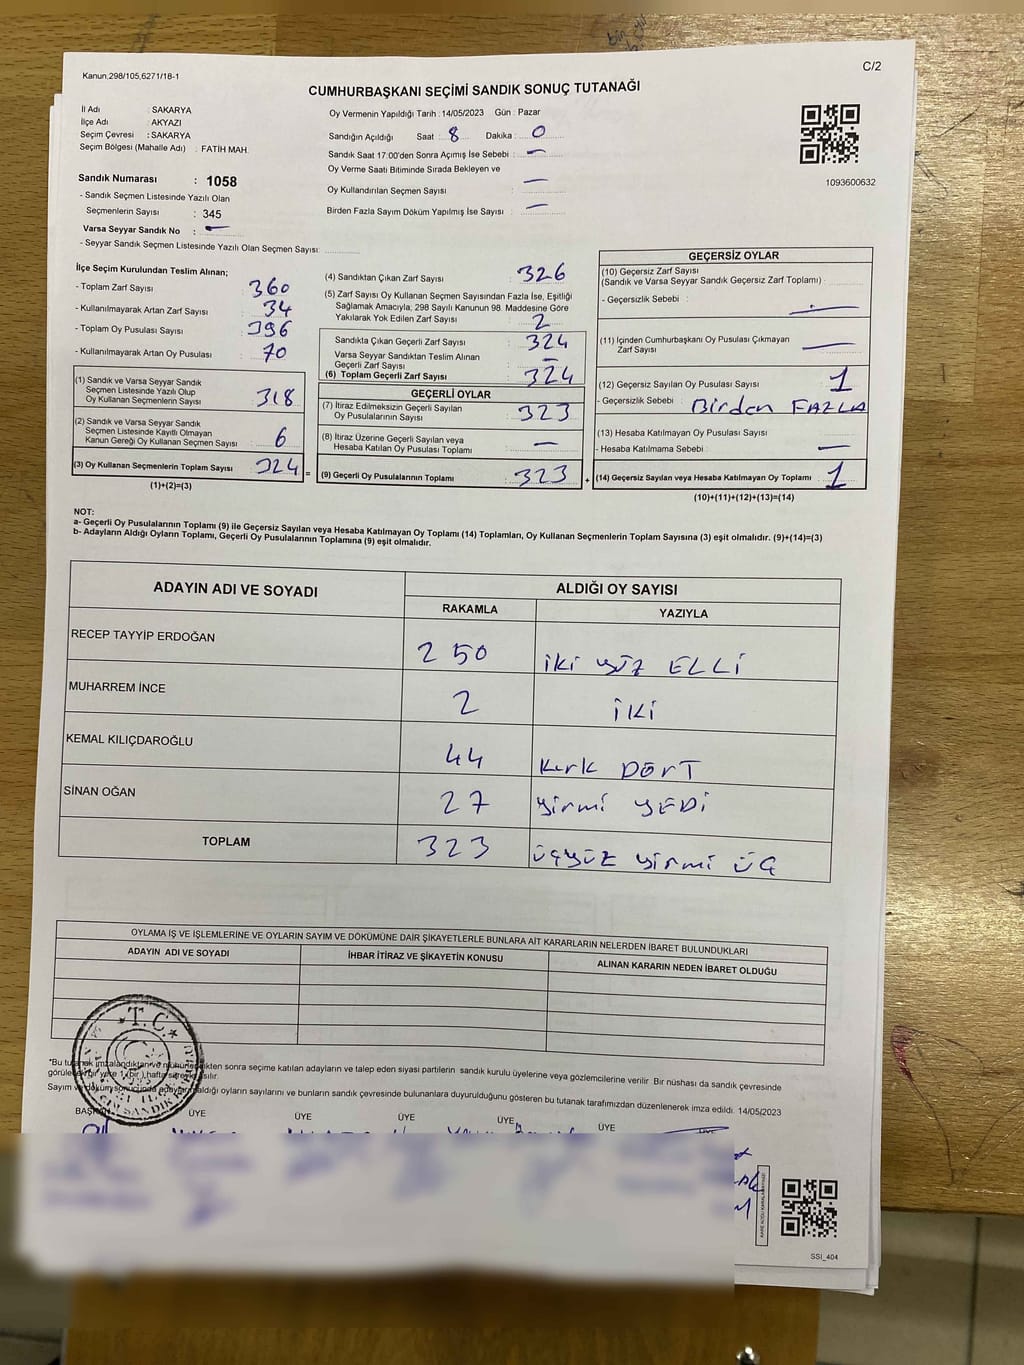 Kanun,298/105,6271/18-1
C/2
CUMHURBAŞKANI SEÇİMİ SANDIK SONUÇ TUTANAĞI
İl Adı : SAKARYA
İlçe Adı : AKYAZI
Seçim Çevresi : SAKARYA
Seçim Bölgesi (Mahalle Adı) : FATİH MAH.
Sandık Numarası : 1058
- Sandık Seçmen Listesinde Yazılı Olan
Seçmenlerin Sayısı : 345
Varsa Seyyar Sandık No : –
- Seyyar Sandık Seçmen Listesinde Yazılı Olan Seçmen Sayısı:
Oy Vermenin Yapıldığı Tarih : 14/05/2023 Gün : Pazar
Sandığın Açıldığı Saat : 8 Dakika : 0
Sandık Saat 17:00'den Sonra Açımış İse Sebebi : –
Oy Verme Saati Bitiminde Sırada Bekleyen ve
Oy Kullandırılan Seçmen Sayısı : –
Birden Fazla Sayım Döküm Yapılmış İse Sayısı : –
1093600632
İlçe Seçim Kurulundan Teslim Alınan;
- Toplam Zarf Sayısı : 360
- Kullanılmayarak Artan Zarf Sayısı : 34
- Toplam Oy Pusulası Sayısı : 396
- Kullanılmayarak Artan Oy Pusulası : 70
(1) Sandık ve Varsa Seyyar Sandık
Seçmen Listesinde Yazılı Olup
Oy Kullanan Seçmenlerin Sayısı : 318
(2) Sandık ve Varsa Seyyar Sandık
Seçmen Listesinde Kayıtlı Olmayan
Kanun Gereği Oy Kullanan Seçmen Sayısı : 6
(3) Oy Kullanan Seçmenlerin Toplam Sayısı : 324 =
(1)+(2)=(3)
(4) Sandıktan Çıkan Zarf Sayısı : 326
(5) Zarf Sayısı Oy Kullanan Seçmen Sayısından Fazla İse, Eşitliği
Sağlamak Amacıyla, 298 Sayılı Kanunun 98. Maddesine Göre
Yakılarak Yok Edilen Zarf Sayısı : 2
Sandıkta Çıkan Geçerli Zarf Sayısı : 324
Varsa Seyyar Sandıktan Teslim Alınan
Geçerli Zarf Sayısı : –
(6) Toplam Geçerli Zarf Sayısı : 324
GEÇERLİ OYLAR
(7) İtiraz Edilmeksizin Geçerli Sayılan
Oy Pusulalarının Sayısı : 323
(8) İtiraz Üzerine Geçerli Sayılan veya
Hesaba Katılan Oy Pusulası Toplamı : –
(9) Geçerli Oy Pusulalarının Toplamı : 323 +
GEÇERSİZ OYLAR
(10) Geçersiz Zarf Sayısı
(Sandık ve Varsa Seyyar Sandık Geçersiz Zarf Toplamı) :
- Geçersizlik Sebebi : –
(11) İçinden Cumhurbaşkanı Oy Pusulası Çıkmayan
Zarf Sayısı : –
(12) Geçersiz Sayılan Oy Pusulası Sayısı : 1
- Geçersizlik Sebebi : Birden FAZLA
(13) Hesaba Katılmayan Oy Pusulası Sayısı :
- Hesaba Katılmama Sebebi : –
(14) Geçersiz Sayılan veya Hesaba Katılmayan Oy Toplamı : 1
(10)+(11)+(12)+(13)=(14)
NOT:
a- Geçerli Oy Pusulalarının Toplamı (9) ile Geçersiz Sayılan veya Hesaba Katılmayan Oy Toplamı (14) Toplamları, Oy Kullanan Seçmenlerin Toplam Sayısına (3) eşit olmalıdır. (9)+(14)=(3)
b- Adayların Aldığı Oyların Toplamı, Geçerli Oy Pusulalarının Toplamına (9) eşit olmalıdır.
ADAYIN ADI VE SOYADI ALDIĞI OY SAYISI
RAKAMLA YAZIYLA
RECEP TAYYİP ERDOĞAN 250 iki yüz ELLİ
MUHARREM İNCE 2 İKİ
KEMAL KILIÇDAROĞLU 44 kırk DÖrT
SİNAN OĞAN 27 yirmi YEDİ
TOPLAM 323 üçyüz yirmi üÇ
OYLAMA İŞ VE İŞLEMLERİNE VE OYLARIN SAYIM VE DÖKÜMÜNE DAİR ŞİKAYETLERLE BUNLARA AİT KARARLARIN NELERDEN İBARET BULUNDUKLARI
ADAYIN ADI VE SOYADI İHBAR İTİRAZ VE ŞİKAYETİN KONUSU ALINAN KARARIN NEDEN İBARET OLDUĞU
*Bu tutanak imzalandıktan ve mühürlendikten sonra seçime katılan adayların ve talep eden siyasi partilerin sandık kurulu üyelerine veya gözlemcilerine verilir. Bir nüshası da sandık çevresinde
görülebilir yere 1 (bir) hafta süreyle asılır.
Sayım ve döküm sonucunda adayların aldığı oyların sayılarını ve bunların sandık çevresinde bulunanlara duyurulduğunu gösteren bu tutanak tarafımızdan düzenlenerek imza edildi. 14/05/2023
T.C.
BAŞKAN ÜYE ÜYE ÜYE ÜYE ÜYE ÜYE
SSI_404